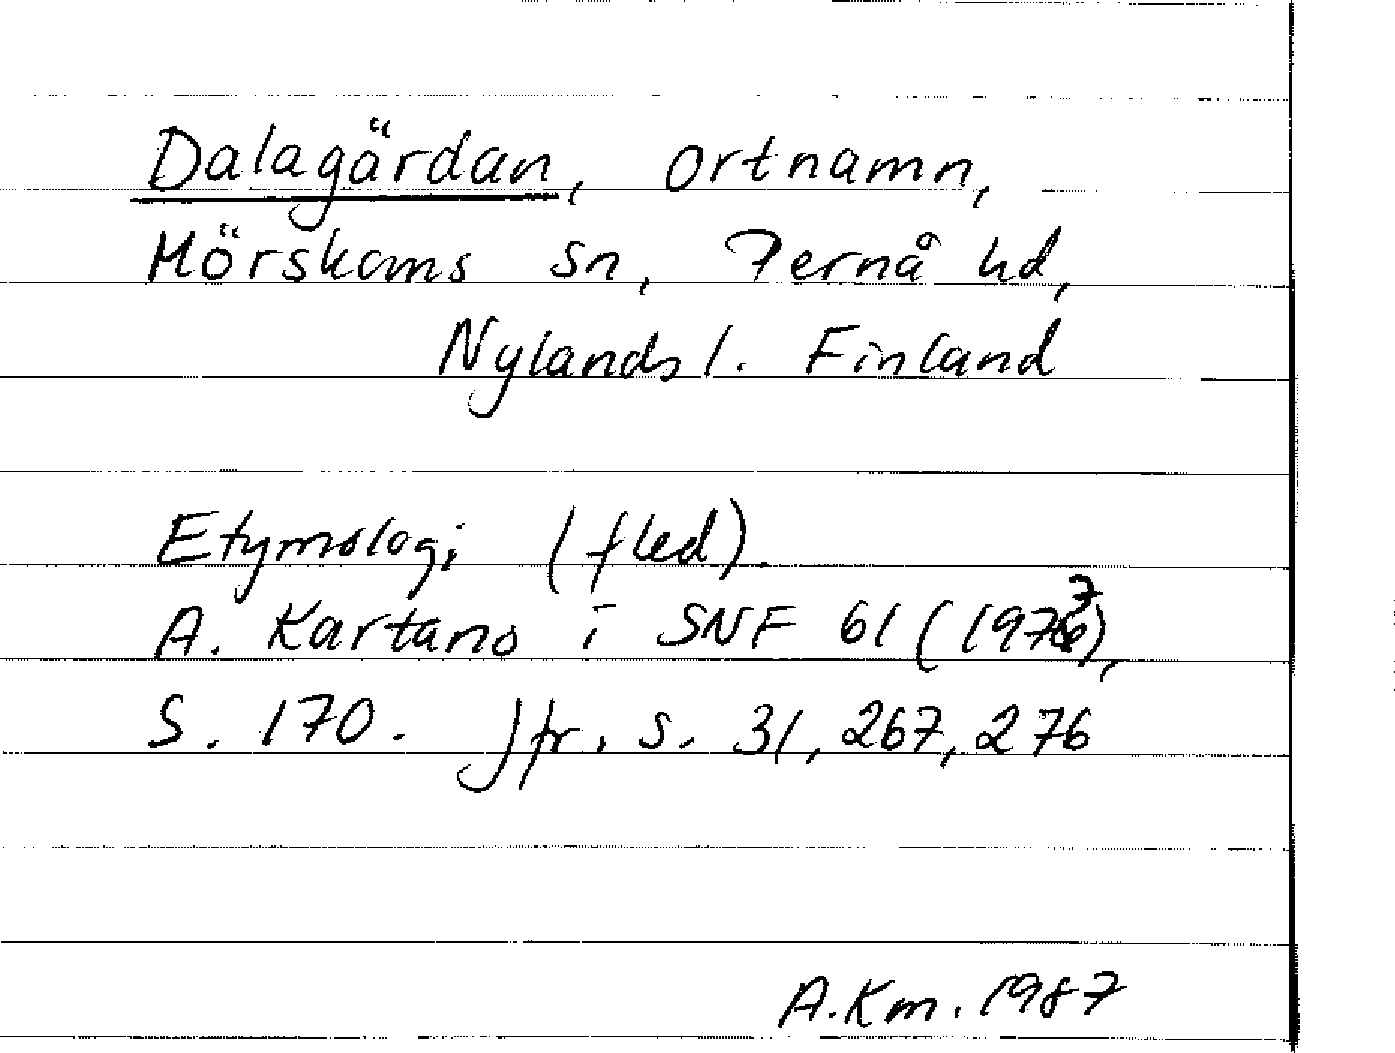 Dalagärdan, ortnamn,
Mörskoms sn, Pernå hd,
Nylands l. Finland
Etymologi (fled).
A. Kartano i SNF 61 (1977),
S. 170. Jfr. s. 31, 267, 276
A.Km. 1987